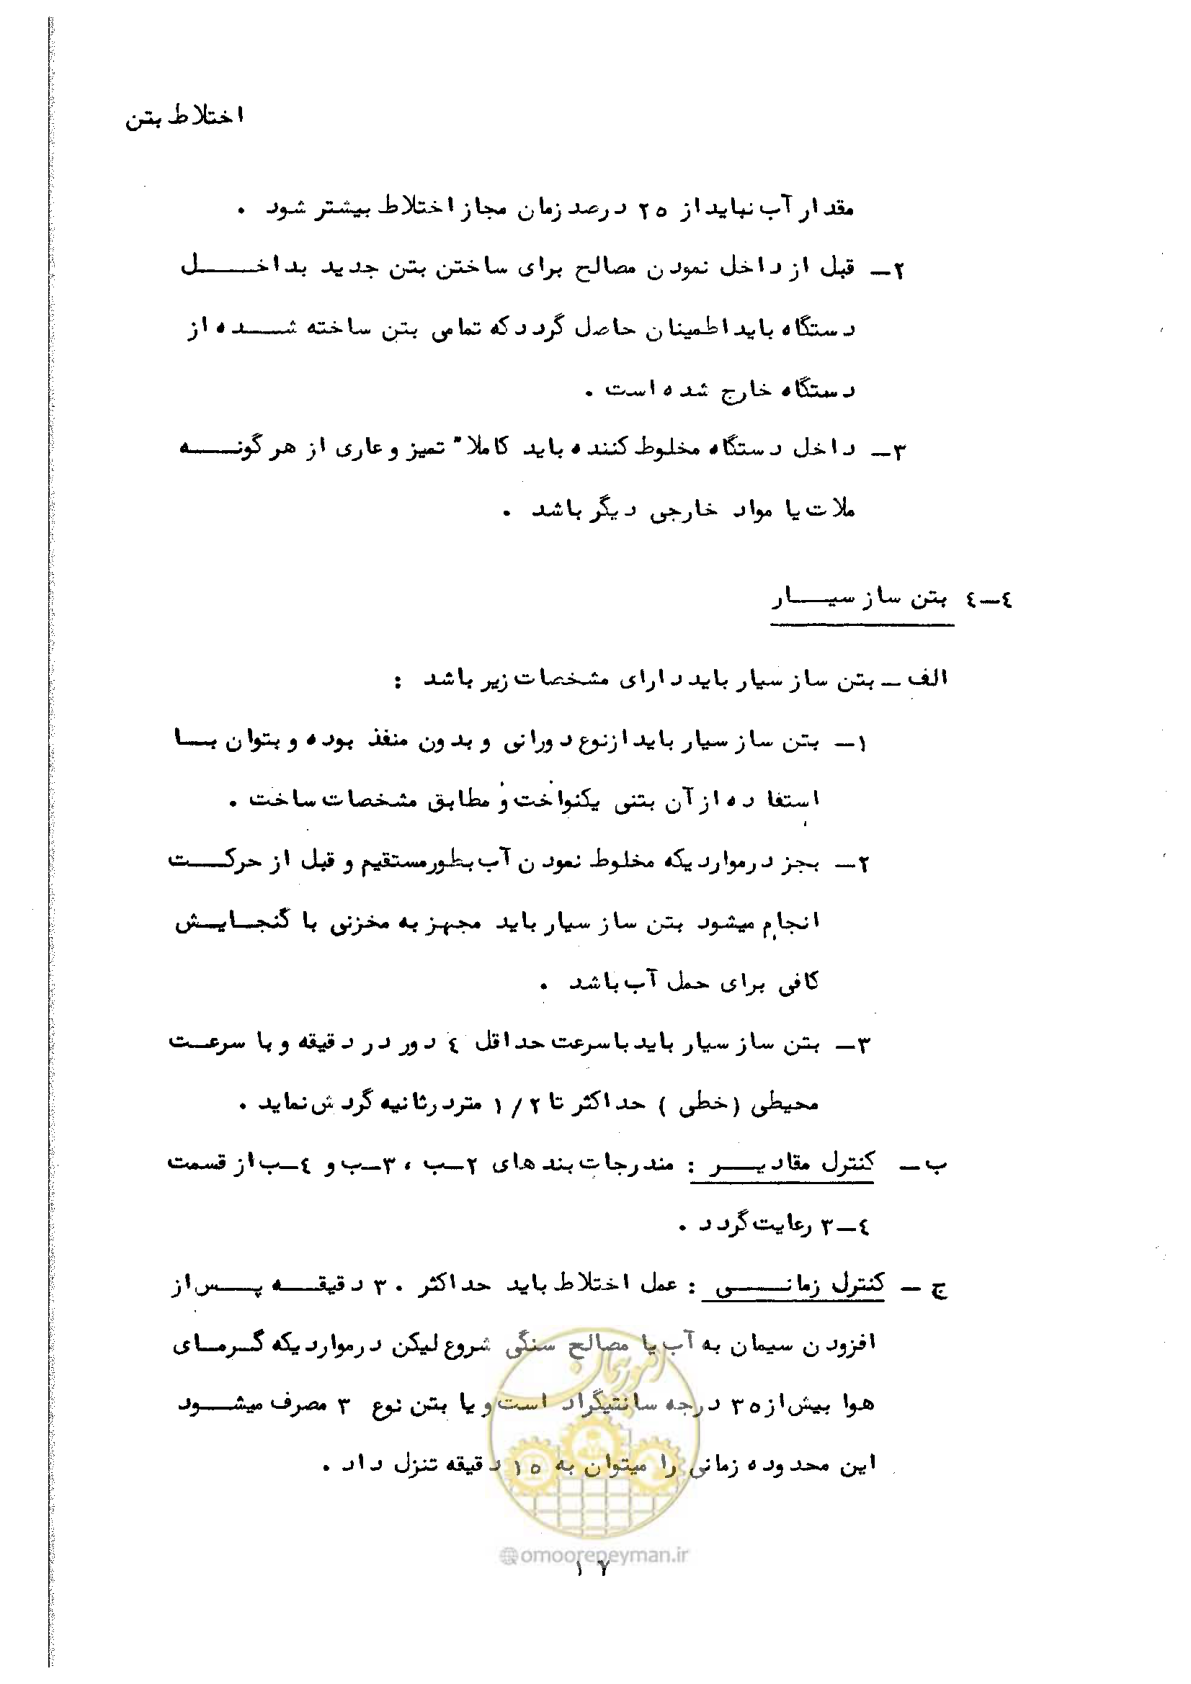 اختلاط بتن
مقدار آب نباید از ۲۵ درصد زمان مجاز اختلاط بیشتر شود .
۲ـ قبل از داخل نمودن مصالح برای ساختن بتن جدید بداخـــل
دستگاه باید اطمینان حاصل گردد که تمامی بتن ساخته شـــده از
دستگاه خارج شده است .
۳ـ داخل دستگاه مخلوط کننده باید کاملا" تمیز و عاری از هر گونـــه
ملات یا مواد خارجی دیگر باشد .
٤ـ٤ بتن ساز سیـــار
الف ـ بتن ساز سیار باید دارای مشخصات زیر باشد :
۱ـ بتن ساز سیار باید از نوع دورانی و بدون منفذ بوده و بتوان بـــا
استفاده از آن بتنی یکنواخت و مطابق مشخصات ساخت .
۲ـ بجز در مواردیکه مخلوط نمودن آب بطور مستقیم و قبل از حرکـــت
انجام میشود بتن ساز سیار باید مجهز به مخزنی با گنجایـــش
کافی برای حمل آب باشد .
۳ـ بتن ساز سیار باید با سرعت حداقل ٤ دور در دقیقه و با سرعـــت
محیطی (خطی ) حداکثر تا ۱/۲ متر در ثانیه گردش نماید .
ب ـ کنترل مقادیـــر : مندرجات بند های ۲ـب ، ۳ـب و ٤ـب از قسمت
٤ـ۳ رعایت گردد .
ج ـ کنترل زمانـــی : عمل اختلاط باید حداکثر ۳۰ دقیقـــه پـــس از
افزودن سیمان به آب یا مصالح سنگی شروع لیکن در مواردیکه گـــرمـــای
هوا بیش از ۳۵ درجه سانتیگراد است و یا بتن نوع ۳ مصرف میشـــود
این محدوده زمانی را میتوان به ۱۵ دقیقه تنزل داد .
امور پیمان
@omoorepeyman.ir
۱۷